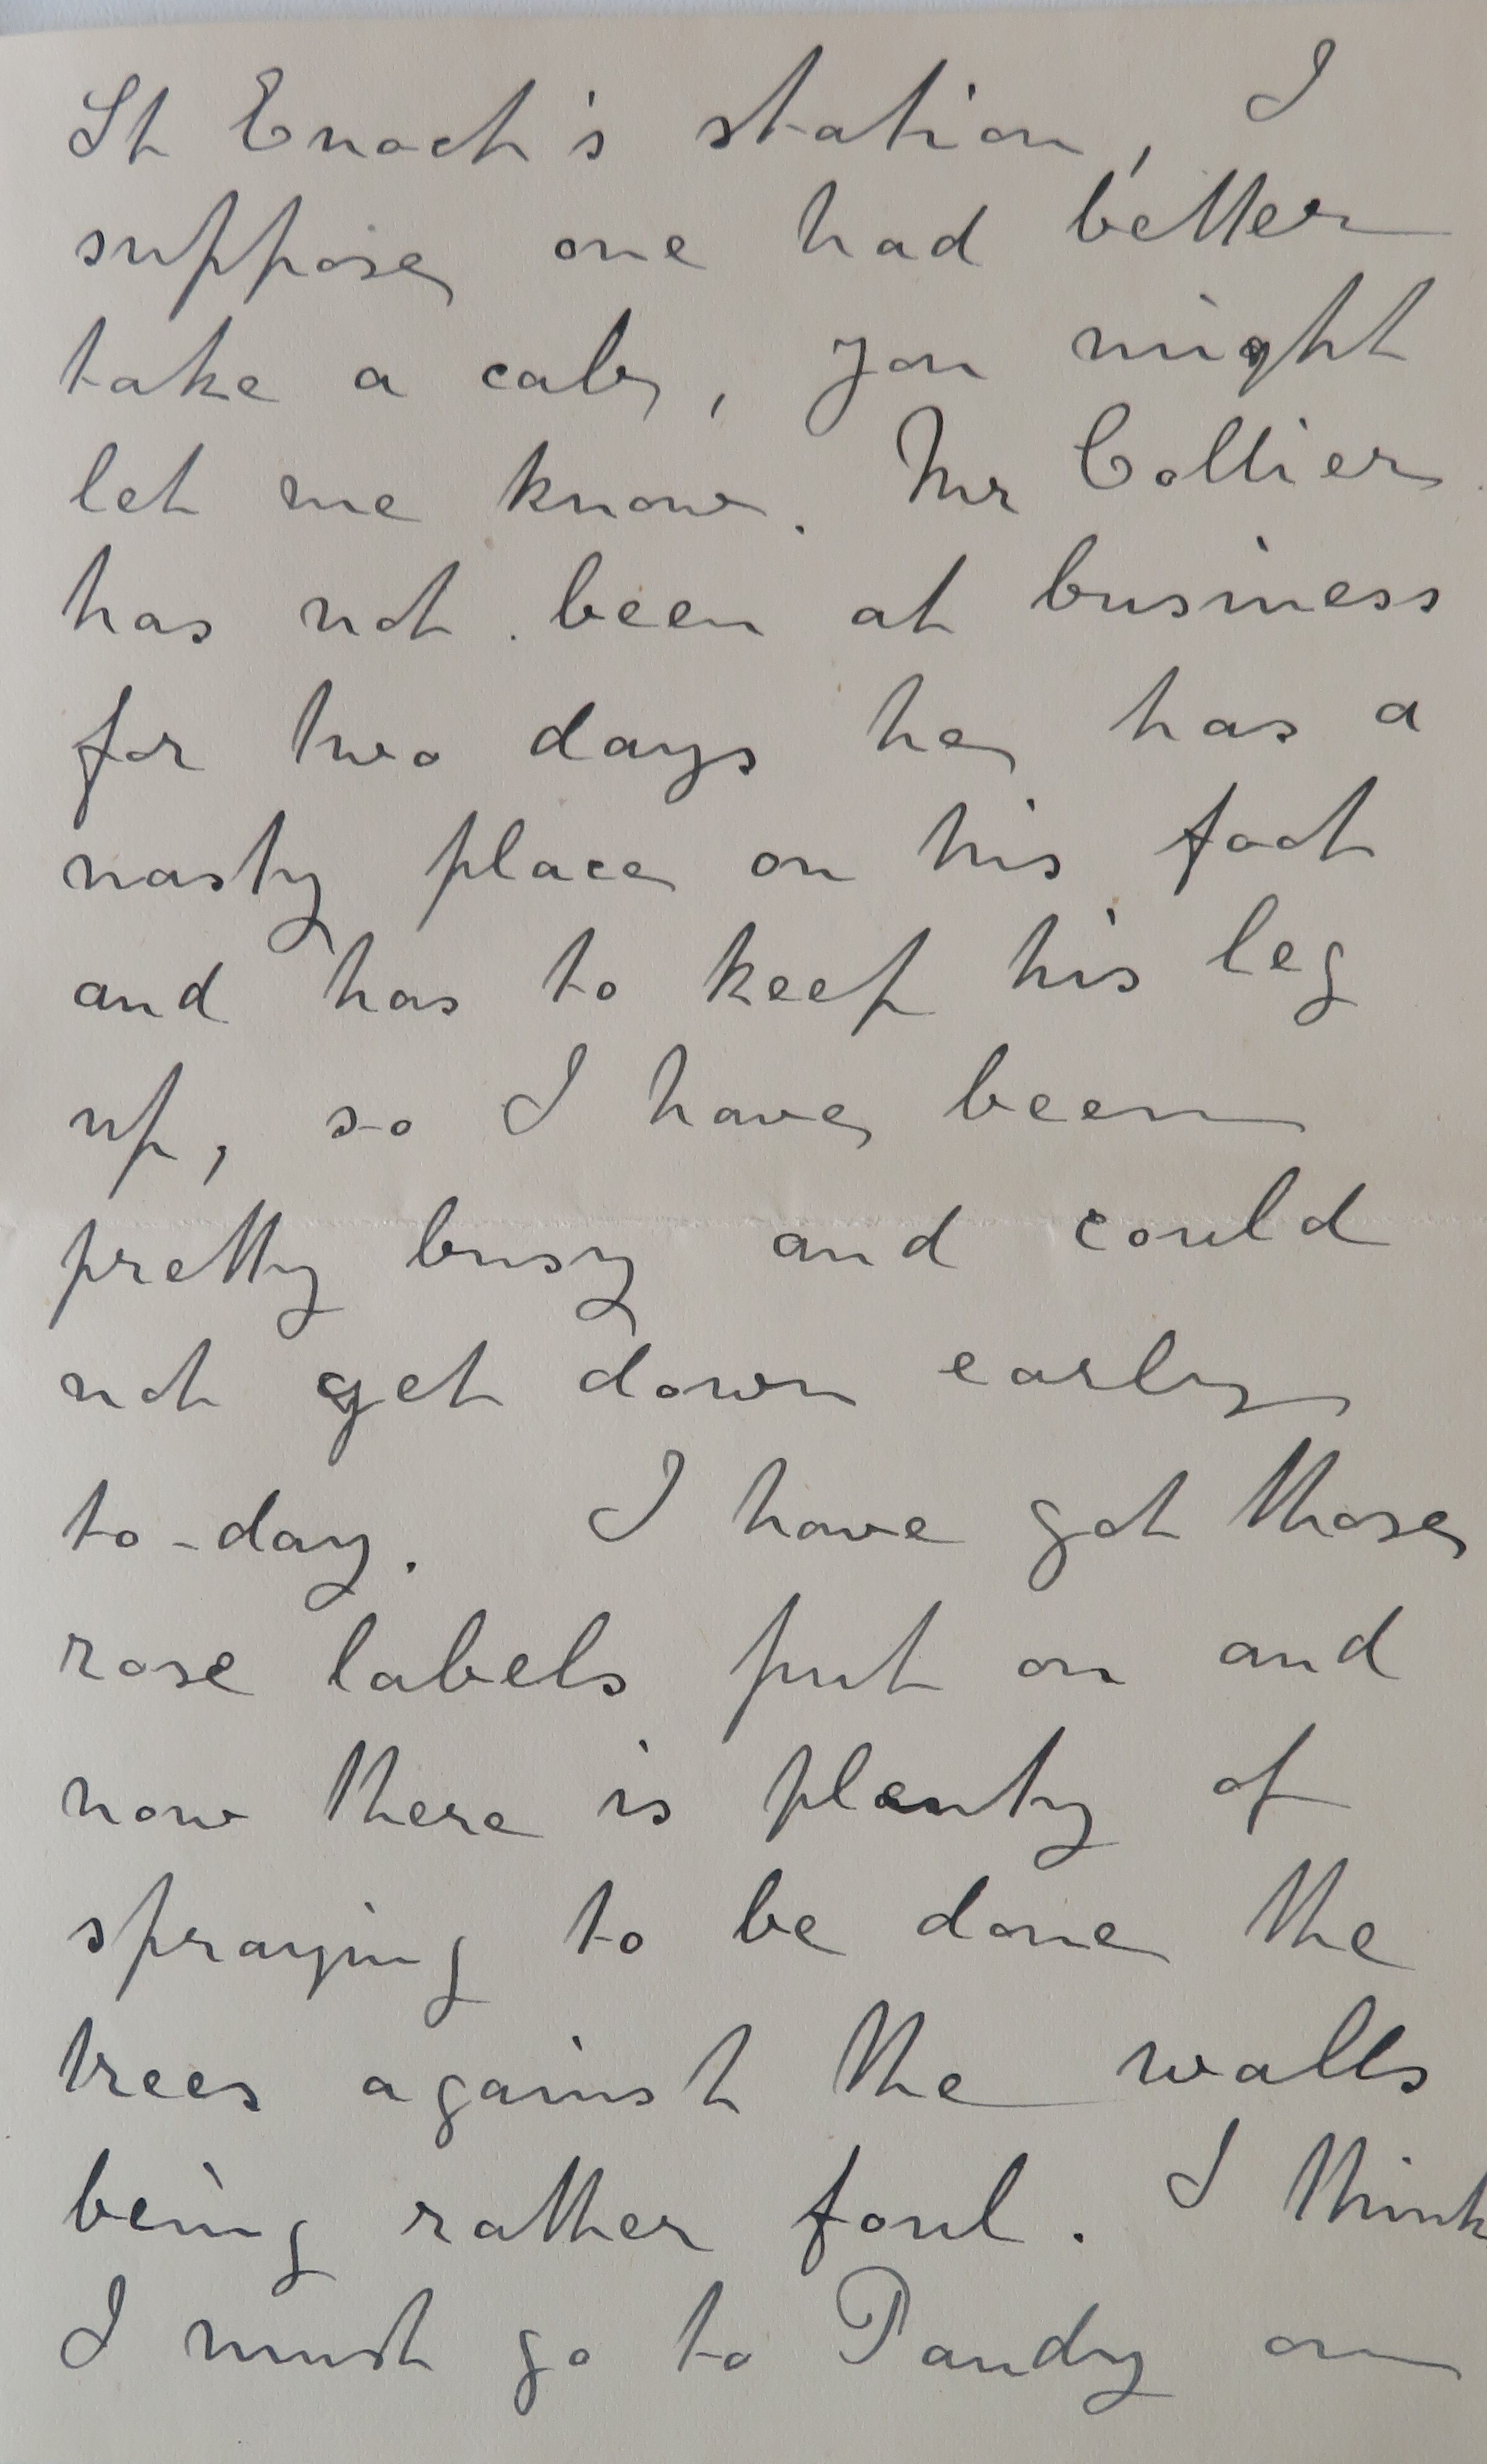 St Enoch's station, I
suppose one had better
take a cab, you might
let me know. Mr Collier
has not been at business
for two days he has a
nasty place on his foot
and has to keep his leg
up, so I have been
pretty busy and could
not get down early
to-day. I have got those
rose labels put on and
now there is plenty of
spraying to be done the
trees against the walls
being rather foul. I think
I must go to Pandy on